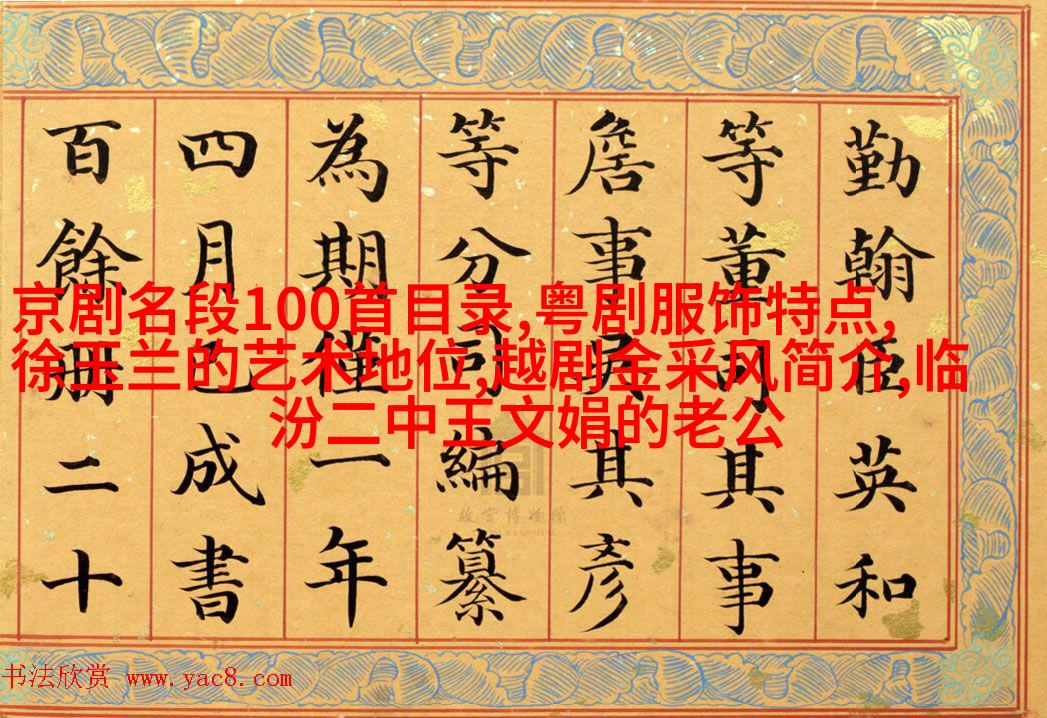 勤翰臣英和
等董司其事
詹事吳其彥
等分司編纂
為期僅一年
四月已成書
百餘冊二十
京剧名段100首目录,粤剧服饰特点,
徐玉兰的艺术地位,越剧金采风简介,临
汾二中王文娟的老公
故宫博物院
书法欣赏 www.yac8.com